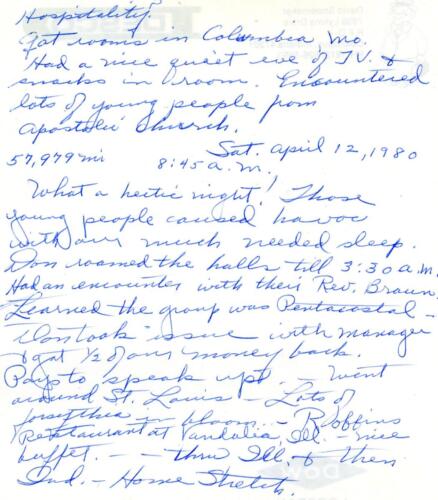 Hospitality.
Got rooms in Columbia, Mo.
Had a nice quiet eve of T.V. &
snacks in room. Encountered
lots of young people from
Apostolic Church.
Sat. April 12, 1980
57,979 mi 8:45 a.m.
What a hectic night! Those
young people caused havoc
with our much needed sleep.
Don roamed the halls till 3:30 a.m.
Had an encounter with their Rev. Braun.
Learned the group was Pentacostal -
Don took issue with manager
& got 1/2 of our money back.
Pays to speak up! - Went
around St. Louis - Lots of
forsythia in bloom. - Robbins
Restaurant at Vandalia, Ill - nice
buffet. - - thru Ill & then
Ind. - Home Stretch.